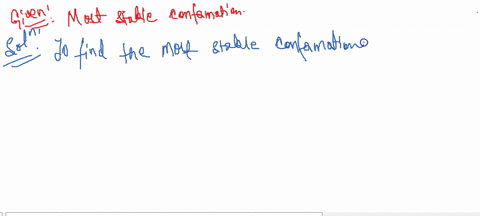 Given: Most stable conformation.
Soln: To find the most stable conformation